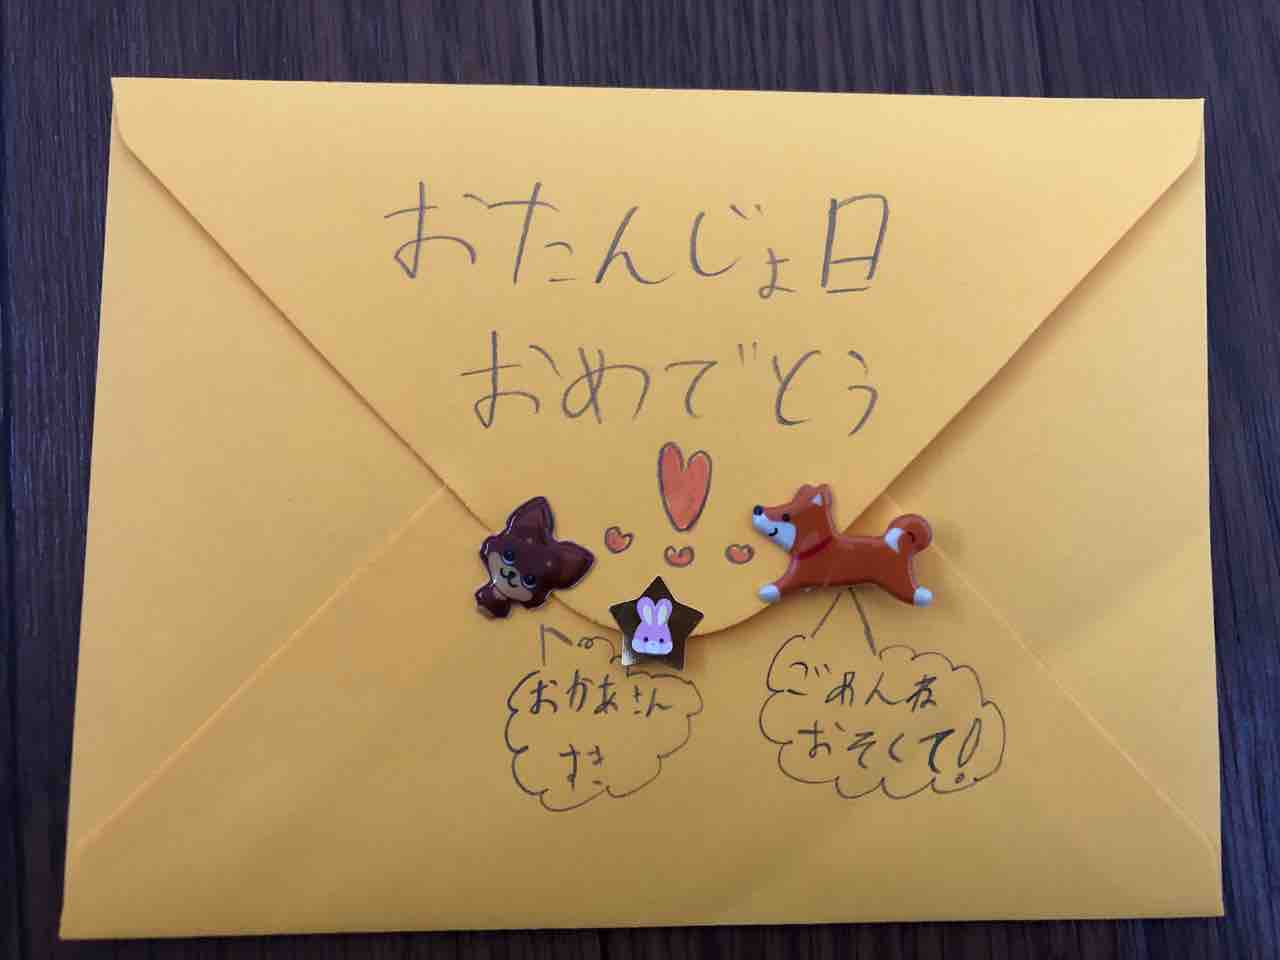 おたんじょ日
おめでとう
おかあさん
すき
ごめんね
おそくて!